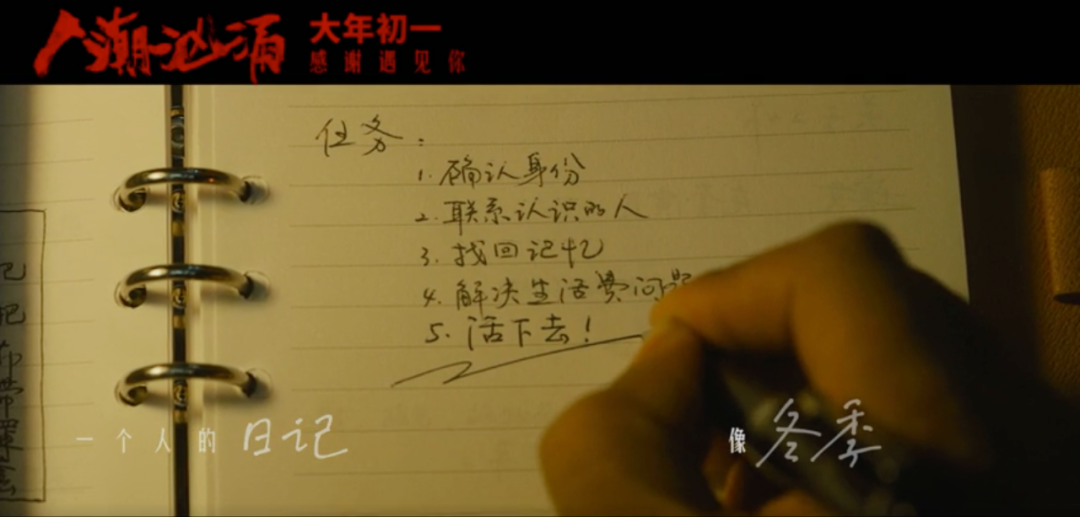 人潮汹涌
大年初一
感谢遇见你
任务：
1. 确认身份
2. 联系认识的人
3. 找回记忆
4. 解决生活费问题
5. 活下去！
一个人的日记
像冬季